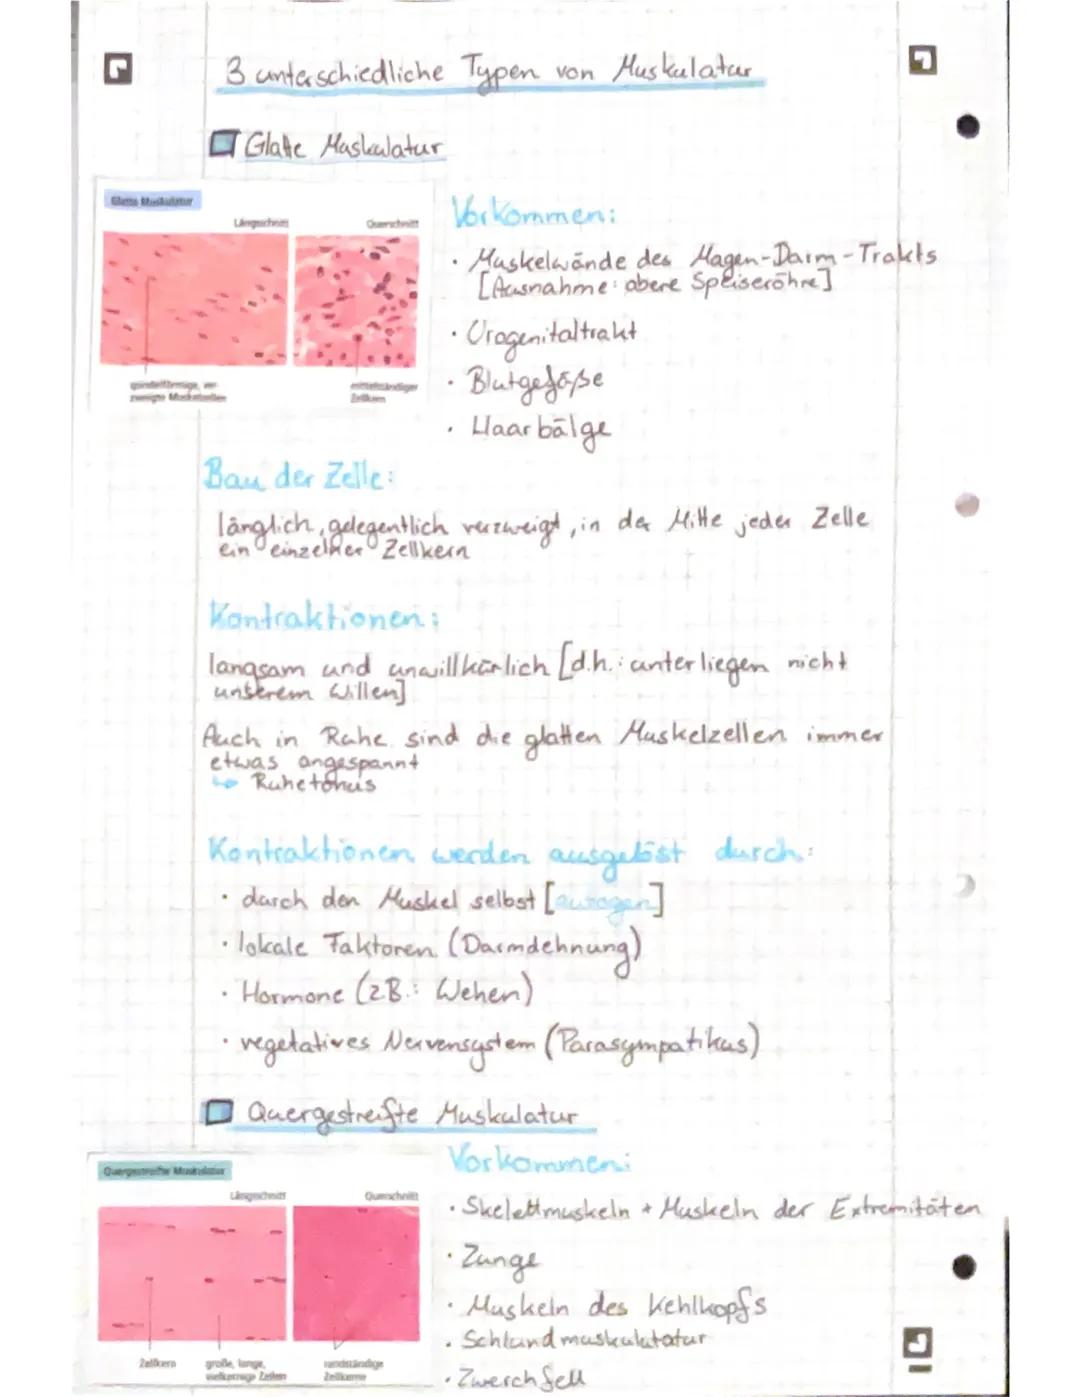 3 unterschiedliche Typen von Muskulatur
Glatte Muskulatur
Glatte Muskulatur
Längsschnitt
Querschnitt
spindelförmige, ver-
zweigte Muskelzellen
mittelständiger
Zellkern
Vorkommen:
· Muskelwände des Magen-Darm-Trakts
[Ausnahme: obere Speiseröhre]
· Urogenitaltrakt
· Blutgefäße
· Haarbälge
Bau der Zelle:
länglich, gelegentlich verzweigt, in der Mitte jeder Zelle
ein einzelner Zellkern
Kontraktionen:
langsam und unwillkürlich [d.h.: unterliegen nicht
unserem Willen]
Auch in Ruhe sind die glatten Muskelzellen immer
etwas angespannt
↳ Ruhetonus
Kontraktionen werden ausgelöst durch:
· durch den Muskel selbst [autogen]
· lokale Faktoren (Darmdehnung)
· Hormone (z.B.: Wehen)
· vegetatives Nervensystem (Parasympatikus)
Quergestreifte Muskulatur
Quergestreifte Muskulatur
Längsschnitt
Querschnitt
Zellkern
große, lange,
vielkernige Zellen
randständige
Zellkerne
Vorkommen:
· Skelettmuskeln + Muskeln der Extremitäten
· Zunge
· Muskeln des Kehlkopfs
· Schlundmuskulatatur
· Zwerchfell